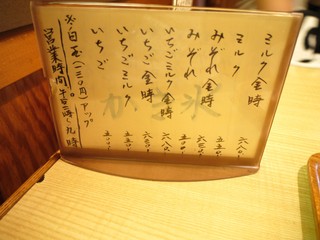 ミルク金時 六八〇
ミルク 五五〇
みぞれ金時 六三〇
みぞれ 五〇〇
いちごミルク金時 六八〇
いちご金時 六八〇
いちごミルク 五五〇
いちご 五〇〇
※白玉(一三〇円)アップ
営業時間 午后二時〜九時
かき氷